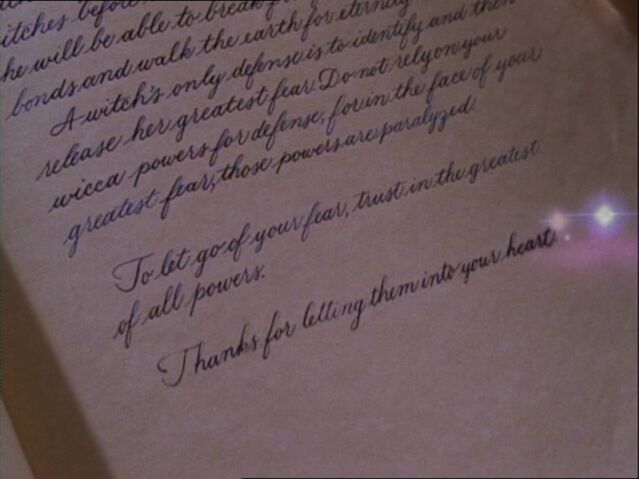 itches before
he will be able to break
bonds and walk the earth for eternity
A witch's only defense is to identify and then
release her greatest fear. Do not rely on your
wicca powers for defense, for in the face of your
greatest fear, those powers are paralyzed.
To let go of your fear, trust in the greatest
of all powers.
Thanks for letting them into your heart.